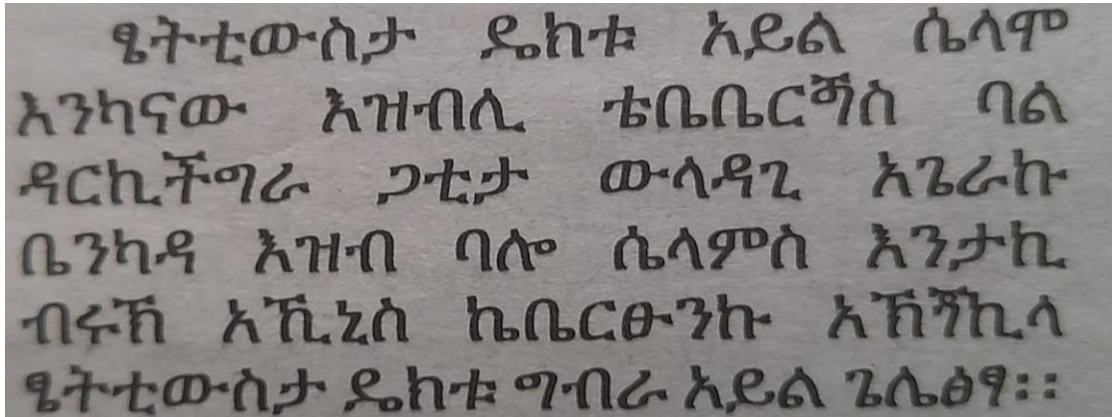 ፄትቲውስታ ዴክቱ አይል ሴላም
እንካናው እዝብሲ ቴቤቤርሽስ ባል
ዳርኪችግራ ጋቲታ ውላዳጊ አጌራኩ
ቤንካዳ እዝብ ባሎ ሴላምስ እንታኪ
ብሩኽ አኺኒስ ኬቤርፁንኩ አኽሻኪላ
ፄትቲውስታ ዴክቱ ግብራ አይል ጌሴፅፃ፡፡